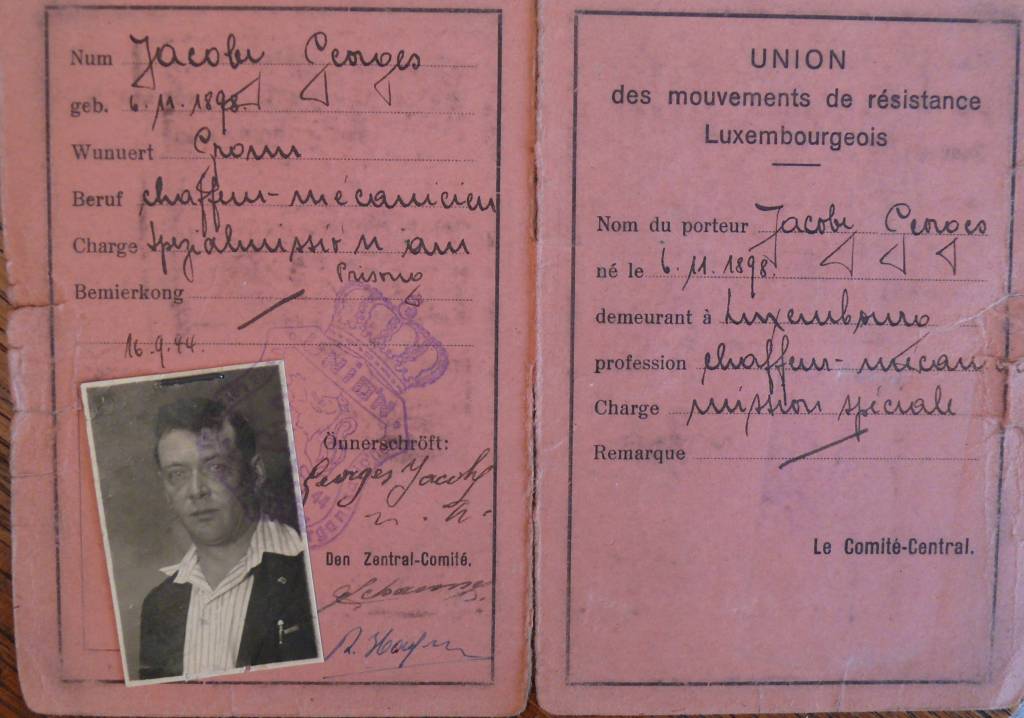 Num Jacoby Georges
geb. 6.11.1898.
Wunuert
Beruf chauffeur-mécanicien
Charge Spezialmission am
Prisong
Bemierkong
16.9.44.
UNION
Önnerschröft:
Georges Jacoby
Den Zentral-Comité.
UNION
des mouvements de résistance
Luxembourgeois
Nom du porteur Jacoby Georges
né le 6.11.1898.
demeurant à Luxembourg
profession chauffeur-mécan
Charge mission spéciale
Remarque
Le Comité-Central.